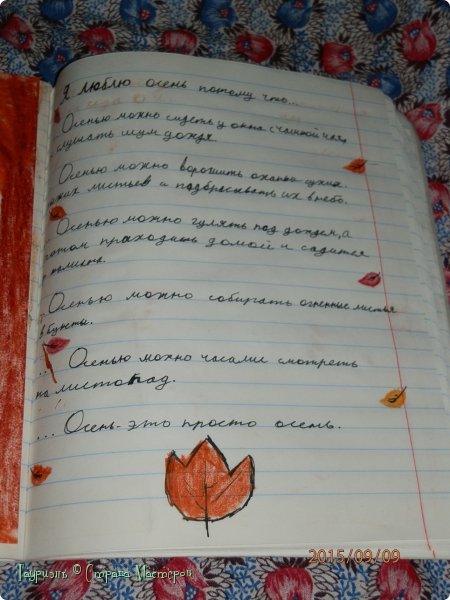 Я люблю осень потому что...
Осенью можно сидеть у окна с чашкой чая,
слушать шум дождя.
Осенью можно ворошить охапки сухих
листьев и подбрасывать их в небо.
Осенью можно гулять под дождем, а
потом приходить домой и садится
Осенью можно собирать огненные листья
в букеты.
... Осенью можно часами смотреть
на листопад.
... Осень - это просто осень.
2015/09/09
Гауриэль © Страна Мастеров